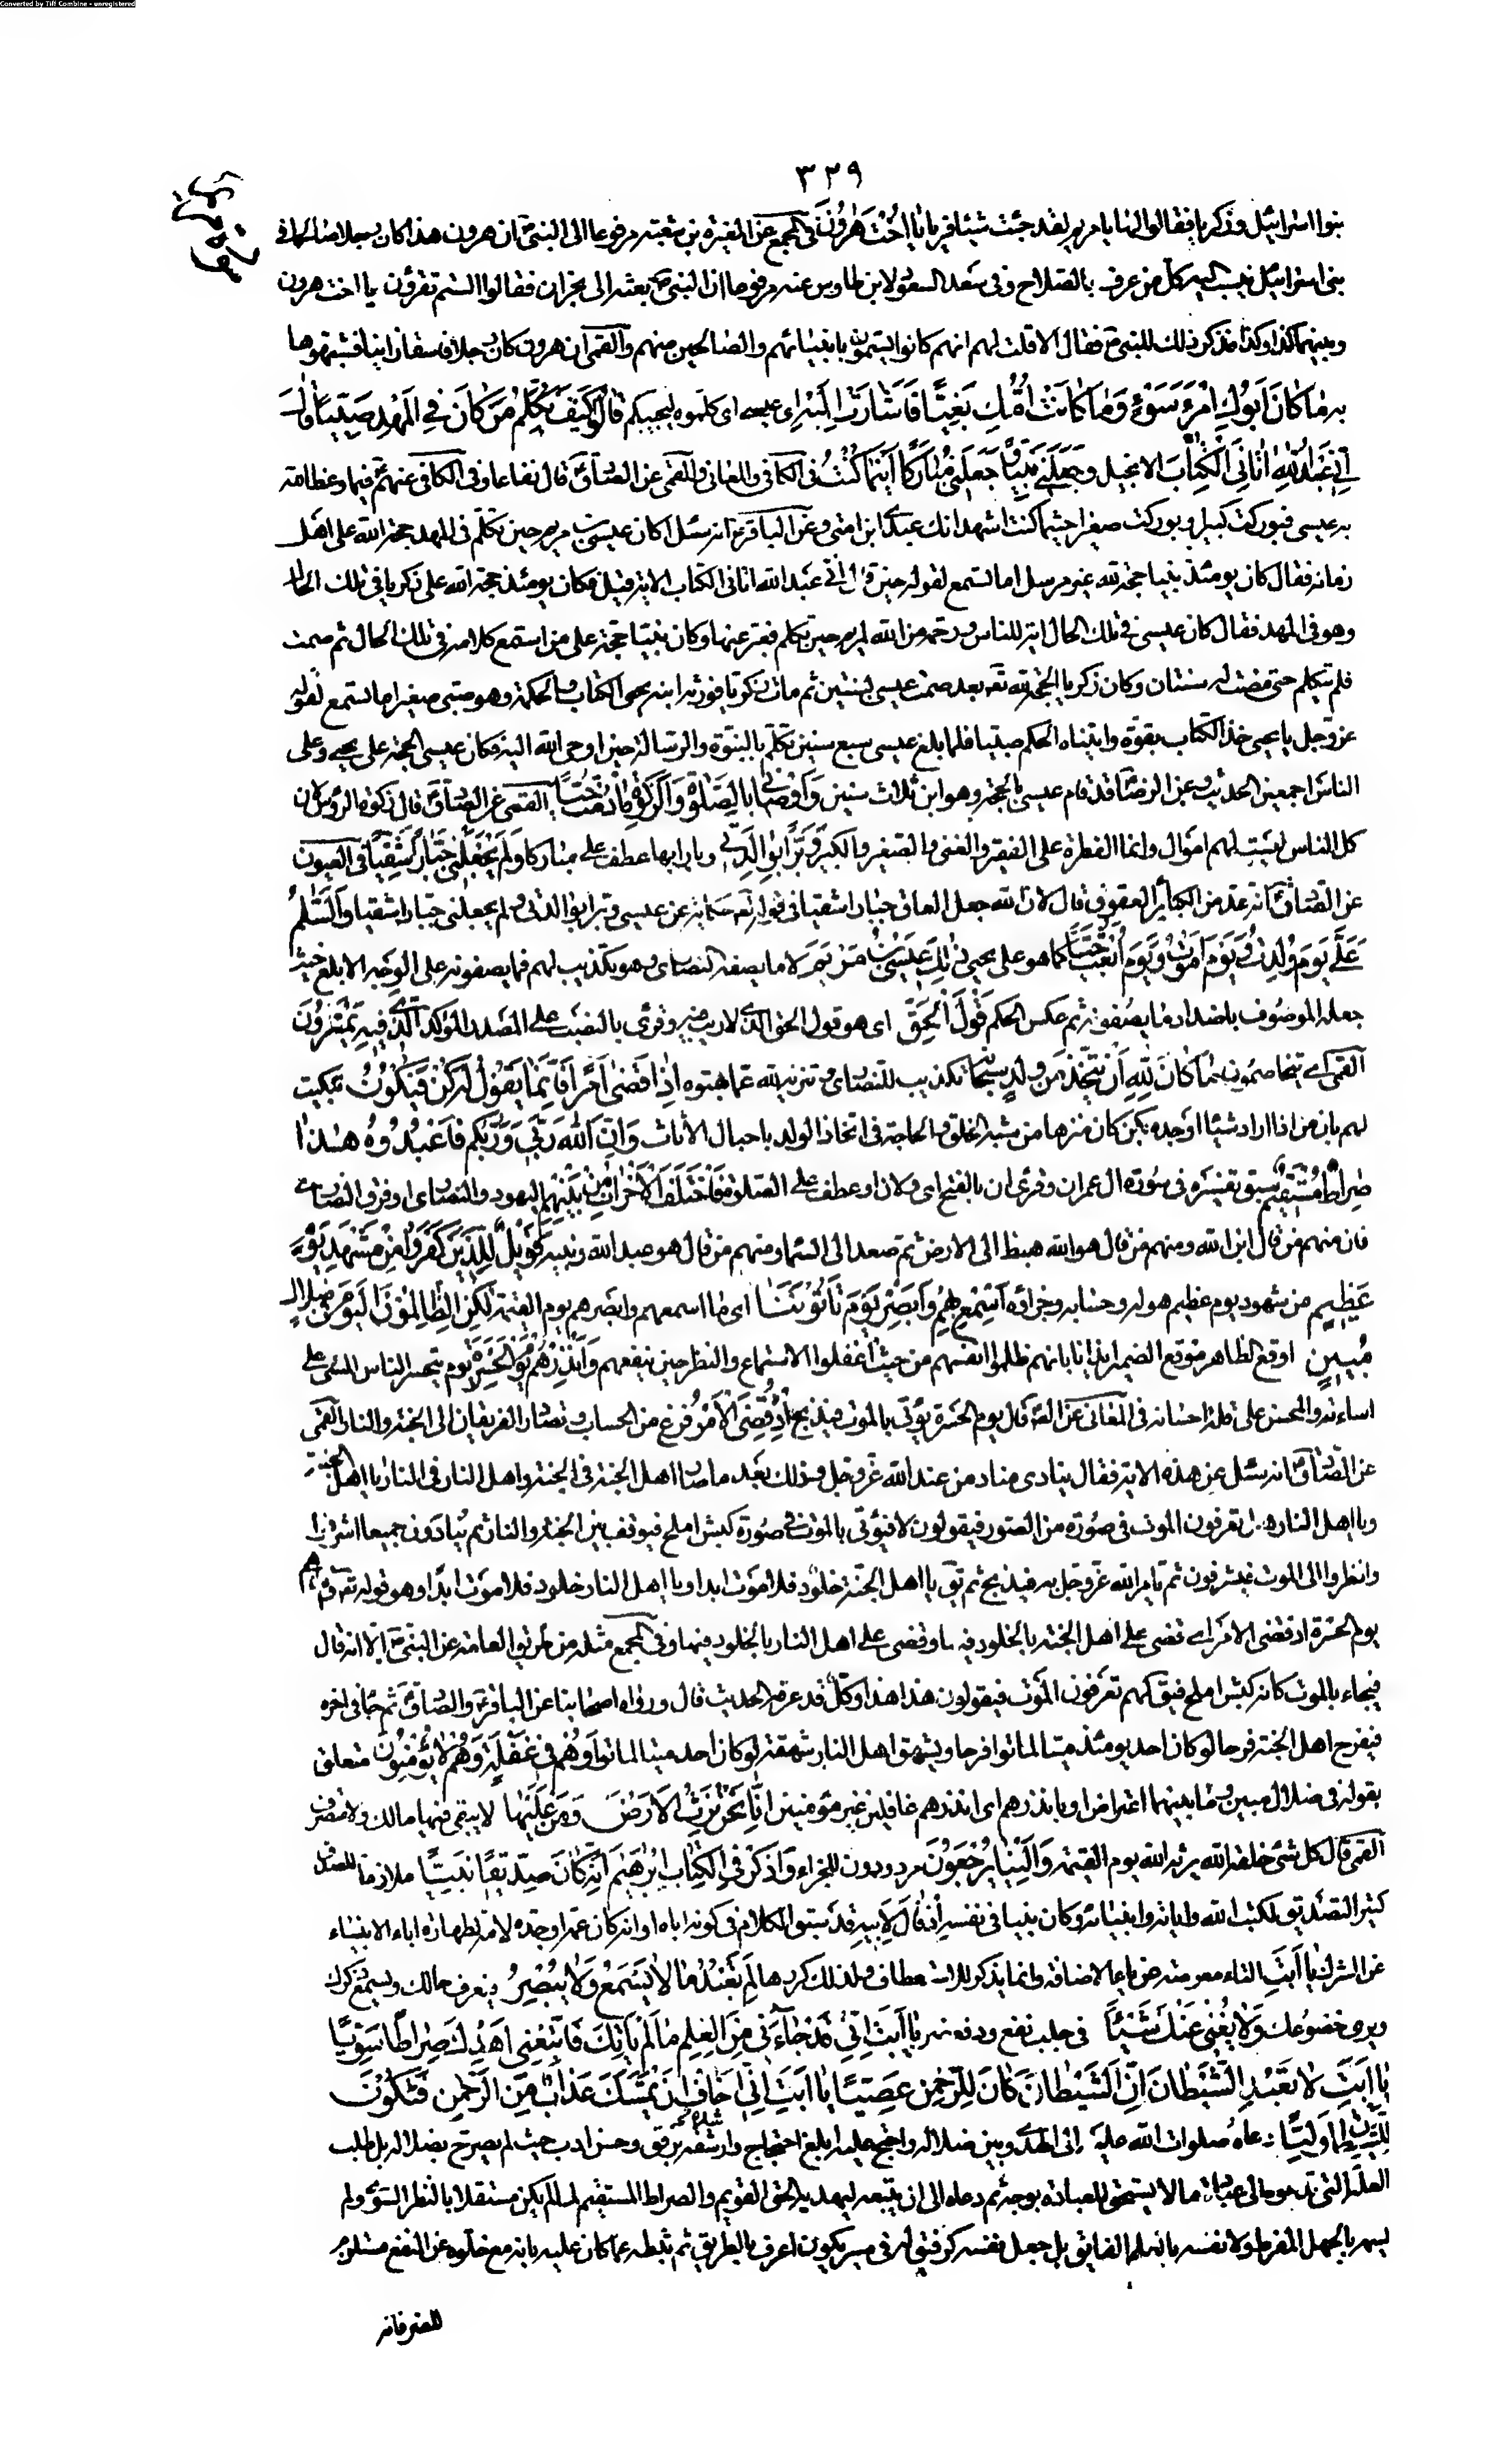 Converted by Tiff Combine - unregistered
٣٢٩
بنوا اسرائيل وزكريا فقالوا لها يا مريم لقد جئت شيئا فريا يا اُخْتَ هٰرُونَ في المجمع عن المغيرة بن شعبة مرفوعا الى النبي ص ان هرون هذا كان رجلا صالحا في
بنى اسرائيل ينسب اليه كل من عرف بالصلاح وفي سعد السعود لابن طاوس عنه مرفوعا ان النبي ص بعثه الى نجران فقالوا الستم تقرؤن يا اخت هرون
وبينهما كذا وكذا فذكر ذلك للنبي ص فقال الا قلت لهم انهم كانوا يسمون بانبيائهم والصالحين منهم والقمي ان هرون كان رجلا فاسقا زانيا فشبهوها
به مٰا كٰانَ اَبُوكِ امْرَءَ سَوْءٍ وَمٰا كٰانَتْ اُمُّكِ بَغِيًّا فَاَشٰارَتْ اِلَيْهِ اى عيسى اى كلموه ليجيبكم قٰالُوا كَيْفَ نُكَلِّمُ مَنْ كٰانَ فِي الْمَهْدِ صَبِيًّا قٰالَ
اِنّي عَبْدُ اللّٰهِ اٰتٰانِيَ الْكِتٰابَ الانجيل وَجَعَلَني نَبِيًّا وَجَعَلَني مُبٰارَكًا اَيْنَمٰا كُنْتُ في الكافي والمعاني والقمي عن الصادق قال نفاعا وفي الكافي عنهم فيما وعظ الله
به عيسى فبوركت كبيرا وبوركت صغيرا حيثما كنت اشهد انك عبدى ابن امتى وعن الباقر ع انه سئل اكان عيسى بن مريم حين تكلم في المهد حجة الله على اهل
زمانه فقال كان يومئذ نبيا حجة لله غير مرسل اما تسمع لقوله حين قال اني عبد الله اتاني الكتاب الاية قيل فكان يومئذ حجة الله على زكريا في تلك الحال
وهو في المهد فقال كان عيسى في تلك الحال اية للناس ورحمة من الله لمريم حين تكلم فعبر عنها وكان نبيا حجة على من استمع كلامه في تلك الحال ثم صمت
فلم يتكلم حتى مضت له سنتان وكان زكريا الحجة لله تع بعد صمت عيسى بسنتين ثم مات زكريا فورثه ابنه يحيى الكتاب والحكمة وهو صبي صغير اما تسمع لقوله
عز وجل يا يحيى خذ الكتاب بقوة واتيناه الحكم صبيا فلما بلغ عيسى سبع سنين تكلم بالنبوة والرسالة حين اوحى الله اليه فكان عيسى الحجة على يحيى وعلى
الناس اجمعين الحديث وعن الرضا قد قام عيسى بالحجة وهو ابن ثلاث سنين وَاَوْصٰاني بِالصَّلٰوةِ وَالزَّكٰوةِ مٰا دُمْتُ حَيًّا القمي عن الصادق قال زكوة الرؤس لان
كل الناس ليست لهم اموال وانما الفطرة على الفقير والغنى والصغير والكبير وَبَرًّا بِوٰالِدَتي وبارا بها عطف على مباركا وَلَمْ يَجْعَلْني جَبّٰارًا شَقِيًّا في العيون
عن الصادق انه عد من الكبائر العقوق قال لان الله جعل العاق جبارا شقيا في قوله تع حكاية عن عيسى وبرا بوالدتى ولم يجعلنى جبارا شقيا وَالسَّلٰامُ
عَلَيَّ يَوْمَ وُلِدْتُ وَيَوْمَ اَمُوتُ وَيَوْمَ اُبْعَثُ حَيًّا كما هو على يحيى ذٰلِكَ عيسَى بْنُ مَرْيَمَ لا ما يصفه النصارى وهو تكذيب لهم فيما يصفونه على الوجه الابلغ حيث
جعله الموصوف باضداد ما يصفونه ثم عكس الحكم قَوْلَ الْحَقِّ اى هو قول الحق الذى لا ريب فيه وقرئ بالنصب على المصدر المؤكد اَلَّذي فيهِ يَمْتَرُونَ
القمي اى يتخاصمون مٰا كٰانَ لِلّٰهِ اَنْ يَتَّخِذَ مِنْ وَلَدٍ سُبْحٰانَهُ تكذيب للنصارى وتنزيه لله عما بهتوه اِذٰا قَضٰى اَمْرًا فَاِنَّمٰا يَقُولُ لَهُ كُنْ فَيَكُونُ تبكيت
لهم بان من اذا اراد شيئا اوجده بكن كان منزها من شبه الخلق والحاجة في اتخاذ الولد باحبال الاناث وَاِنَّ اللّٰهَ رَبّي وَرَبُّكُمْ فَاعْبُدُوهُ هٰذٰا
صِرٰاطٌ مُسْتَقيمٌ سبق تفسيره في سورة ال عمران وقرئ ان بالفتح اى ولان او عطف على الصلوة فَاخْتَلَفَ الْاَحْزٰابُ مِنْ بَيْنِهِمْ اليهود والنصارى او فرق النصارى
فان منهم من قال ابن الله ومنهم من قال هو الله هبط الى الارض ثم صعد الى السماء ومنهم من قال هو عبد الله ونبيه فَوَيْلٌ لِلَّذينَ كَفَرُوا مِنْ مَشْهَدِ يَوْمٍ
عَظيمٍ من شهود يوم عظيم هوله وحسابه وجزاؤه اَسْمِعْ بِهِمْ وَاَبْصِرْ يَوْمَ يَأْتُونَنٰا اى ما اسمعهم وابصرهم يوم القيمة لٰكِنِ الظّٰالِمُونَ الْيَوْمَ في ضَلٰالٍ
مُبينٍ اوقع الظاهر موقع الضمير ايذانا بانهم ظلموا انفسهم من حيث اغفلوا الاستماع والنظر حين ينفعهم وَاَنْذِرْهُمْ يَوْمَ الْحَسْرَةِ يوم يتحسر الناس المسئ على
اساءته والمحسن على قلة احسانه في المعاني عن الص قال يوم الحسرة يؤتى بالموت فيذبح اِذْ قُضِيَ الْاَمْرُ فرغ من الحساب وتصادر الفريقان الى الجنة والنار القمي
عن الصادق انه سئل عن هذه الاية فقال ينادى مناد من عند الله عز وجل وذلك بعد ما صار اهل الجنة في الجنة واهل النار في النار يا اهل الجنة
ويا اهل النار هل تعرفون الموت في صورة من الصور فيقولون لا فيؤتى بالموت في صورة كبش املح فيوقف بين الجنة والنار ثم ينادون جميعا اشرفوا
وانظروا الى الموت فيشرفون ثم يامر الله عز وجل به فيذبح ثم يق يا اهل الجنة خلود فلا موت ابدا ويا اهل النار خلود فلا موت ابدا وهو قوله تع وانذرهم
يوم الحسرة اذ قضى الامر اى قضى على اهل الجنة بالخلود فيها وقضى على اهل النار بالخلود فيها وفي المجمع مثله من طريق العامة عن النبي ص الا انه قال
فيجاء بالموت كانه كبش املح فيق لهم تعرفون الموت فيقولون هذا هذا وكل قد عرفه الحديث قال ورواه اصحابنا عن الباقر ع والصادق ثم جاء في اخره
فيفرح اهل الجنة فرحا لو كان احد يومئذ ميتا لماتوا فرحا ويشهق اهل النار شهقة لو كان احد ميتا لماتوا وَهُمْ في غَفْلَةٍ وَهُمْ لٰا يُؤْمِنُونَ متعلق
بقوله في ضلال مبين وما بينهما اعتراض او بانذرهم اى انذرهم غافلين غير مؤمنين اِنّٰا نَحْنُ نَرِثُ الْاَرْضَ وَمَنْ عَلَيْهٰا لا يبقى فيها مالك ولا متصرف
القمي قال كل شئ خلقه الله يرثه الله يوم القيمة وَاِلَيْنٰا يُرْجَعُونَ مردودون للجزاء وَاذْكُرْ فِي الْكِتٰابِ اِبْرٰهيمَ اِنَّهُ كٰانَ صِدّيقًا نَبِيًّا ملازما للصدق
كثير التصديق لكتب الله واياته وانبيائه وكان نبيا في نفسه اِذْ قٰالَ لِاَبيهِ قد سبق الكلام في كونه اباه او انه كان عمه او جده لامه لطهارة اباء الانبياء
عن الشرك يٰا اَبَتِ التاء معوضة عن ياء الاضافة وانما يذكر للاستعطاف ولذلك كررها لِمَ تَعْبُدُ مٰا لٰا يَسْمَعُ وَلٰا يُبْصِرُ فيعرف حالك ويسمع ذكرك
ويرى خضوعك وَلٰا يُغْني عَنْكَ شَيْئًا في جلب نفع ودفع ضر يٰا اَبَتِ اِنّي قَدْ جٰاءَني مِنَ الْعِلْمِ مٰا لَمْ يَأْتِكَ فَاتَّبِعْني اَهْدِكَ صِرٰاطًا سَوِيًّا
يٰا اَبَتِ لٰا تَعْبُدِ الشَّيْطٰانَ اِنَّ الشَّيْطٰانَ كٰانَ لِلرَّحْمٰنِ عَصِيًّا يٰا اَبَتِ اِنّي اَخٰافُ اَنْ يَمَسَّكَ عَذٰابٌ مِنَ الرَّحْمٰنِ فَتَكُونَ
لِلشَّيْطٰانِ وَلِيًّا دعاه صلوات الله عليه الى الهدى وبين ضلاله واحتج عليه ابلغ احتجاج وارشقه برفق وحسن ادب حيث لم يصرح بضلاله بل طلب
العلة التى تدعوه الى عبادة ما لا يستحق للعبادة بوجه ثم دعاه الى ان يتبعه ليهديه الحق القويم والصراط المستقيم لما لم يكن مستقلا بالنظر السوى ولم
يسمه بالجهل المفرط ولا نفسه بالعلم الفايق بل جعل نفسه كرفيق له في مسير يكون اعرف بالطريق ثم ثبطه عما كان عليه بانه مع خلوه عن النفع مستلزم
للضر فانه